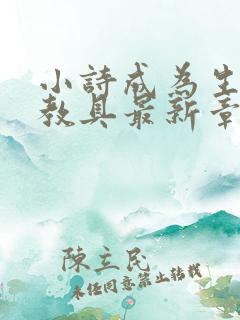 小詩戒為生
教具最新章
陳立民
未任同意禁止转載